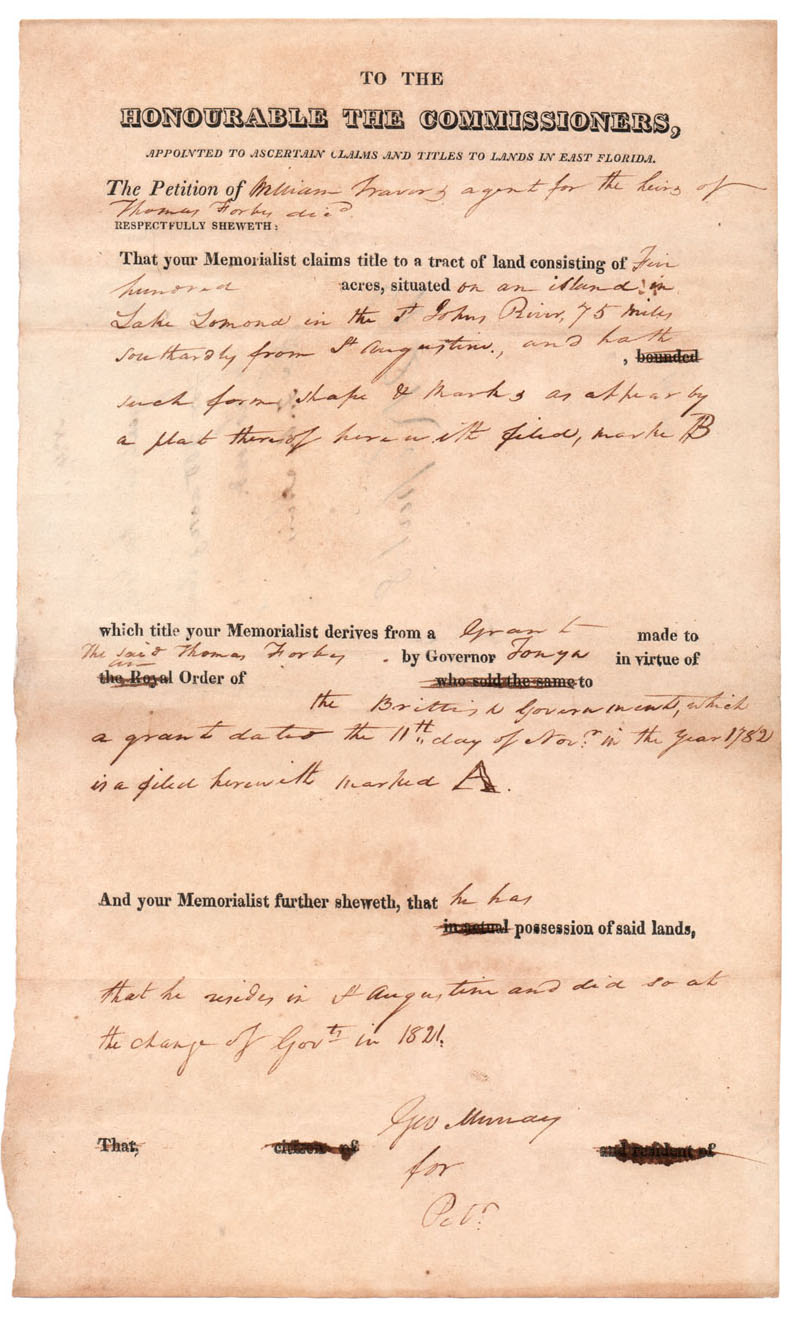 TO THE
HONOURABLE THE COMMISSIONERS,
APPOINTED TO ASCERTAIN CLAIMS AND TITLES TO LANDS IN EAST FLORIDA.
The Petition of William Travers agent for the heirs of
Thomas Forbes decd
RESPECTFULLY SHEWETH:
That your Memorialist claims title to a tract of land consisting of Five
hundred acres, situated on an island in
Lake Lomond in the St Johns River, 75 Miles
southardly from St Augustine, and hath , bounded
such form shape & marks as appear by
a plat thereof herewith filed, marke B
which title your Memorialist derives from a Grant made to
The said Thomas Forbes . by Governor Tonyn in virtue of
the Royal an Order of who sold the same to
the Brittish Government, which
a grant dated the 11th day of Novr in the Year 1782
is a filed herewith marked A.
And your Memorialist further sheweth, that he has
in actual possession of said lands,
that he resides in St Augustine and did so at
the change of Govts in 1821.
Geo Murray
That, citizen of and resident of
for
Petr